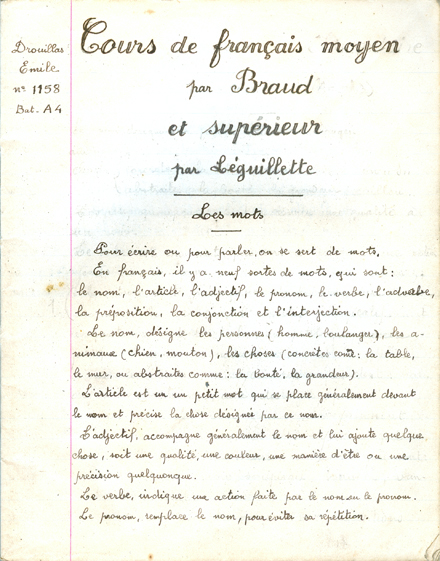 Drouillas
Emile
n° 1158
Bat. A4
Cours de français moyen
par Braud
et supérieur
par Léguillette
Les mots
Pour écrire ou pour parler, on se sert de mots.
En français, il y a neuf sortes de mots, qui sont :
le nom, l'article, l'adjectif, le pronom, le verbe, l'adverbe,
la préposition, la conjonction et l'interjection.
Le nom, désigne les personnes (homme, boulanger), les a-
nimaux (chien, mouton), les choses (concrètes comme: la table,
le mur, ou abstraites comme : la bonté, la grandeur).
L'article est un un petit mot qui se place généralement devant
le nom et précise la chose désignée par ce nom.
L'adjectif, accompagne généralement le nom et lui ajoute quelque
chose, soit une qualité, une couleur, une manière d'être ou une
précision quelquonque.
Le verbe, indique une action faite par le nom ou le pronom.
Le pronom, remplace le nom, pour éviter sa répétition.